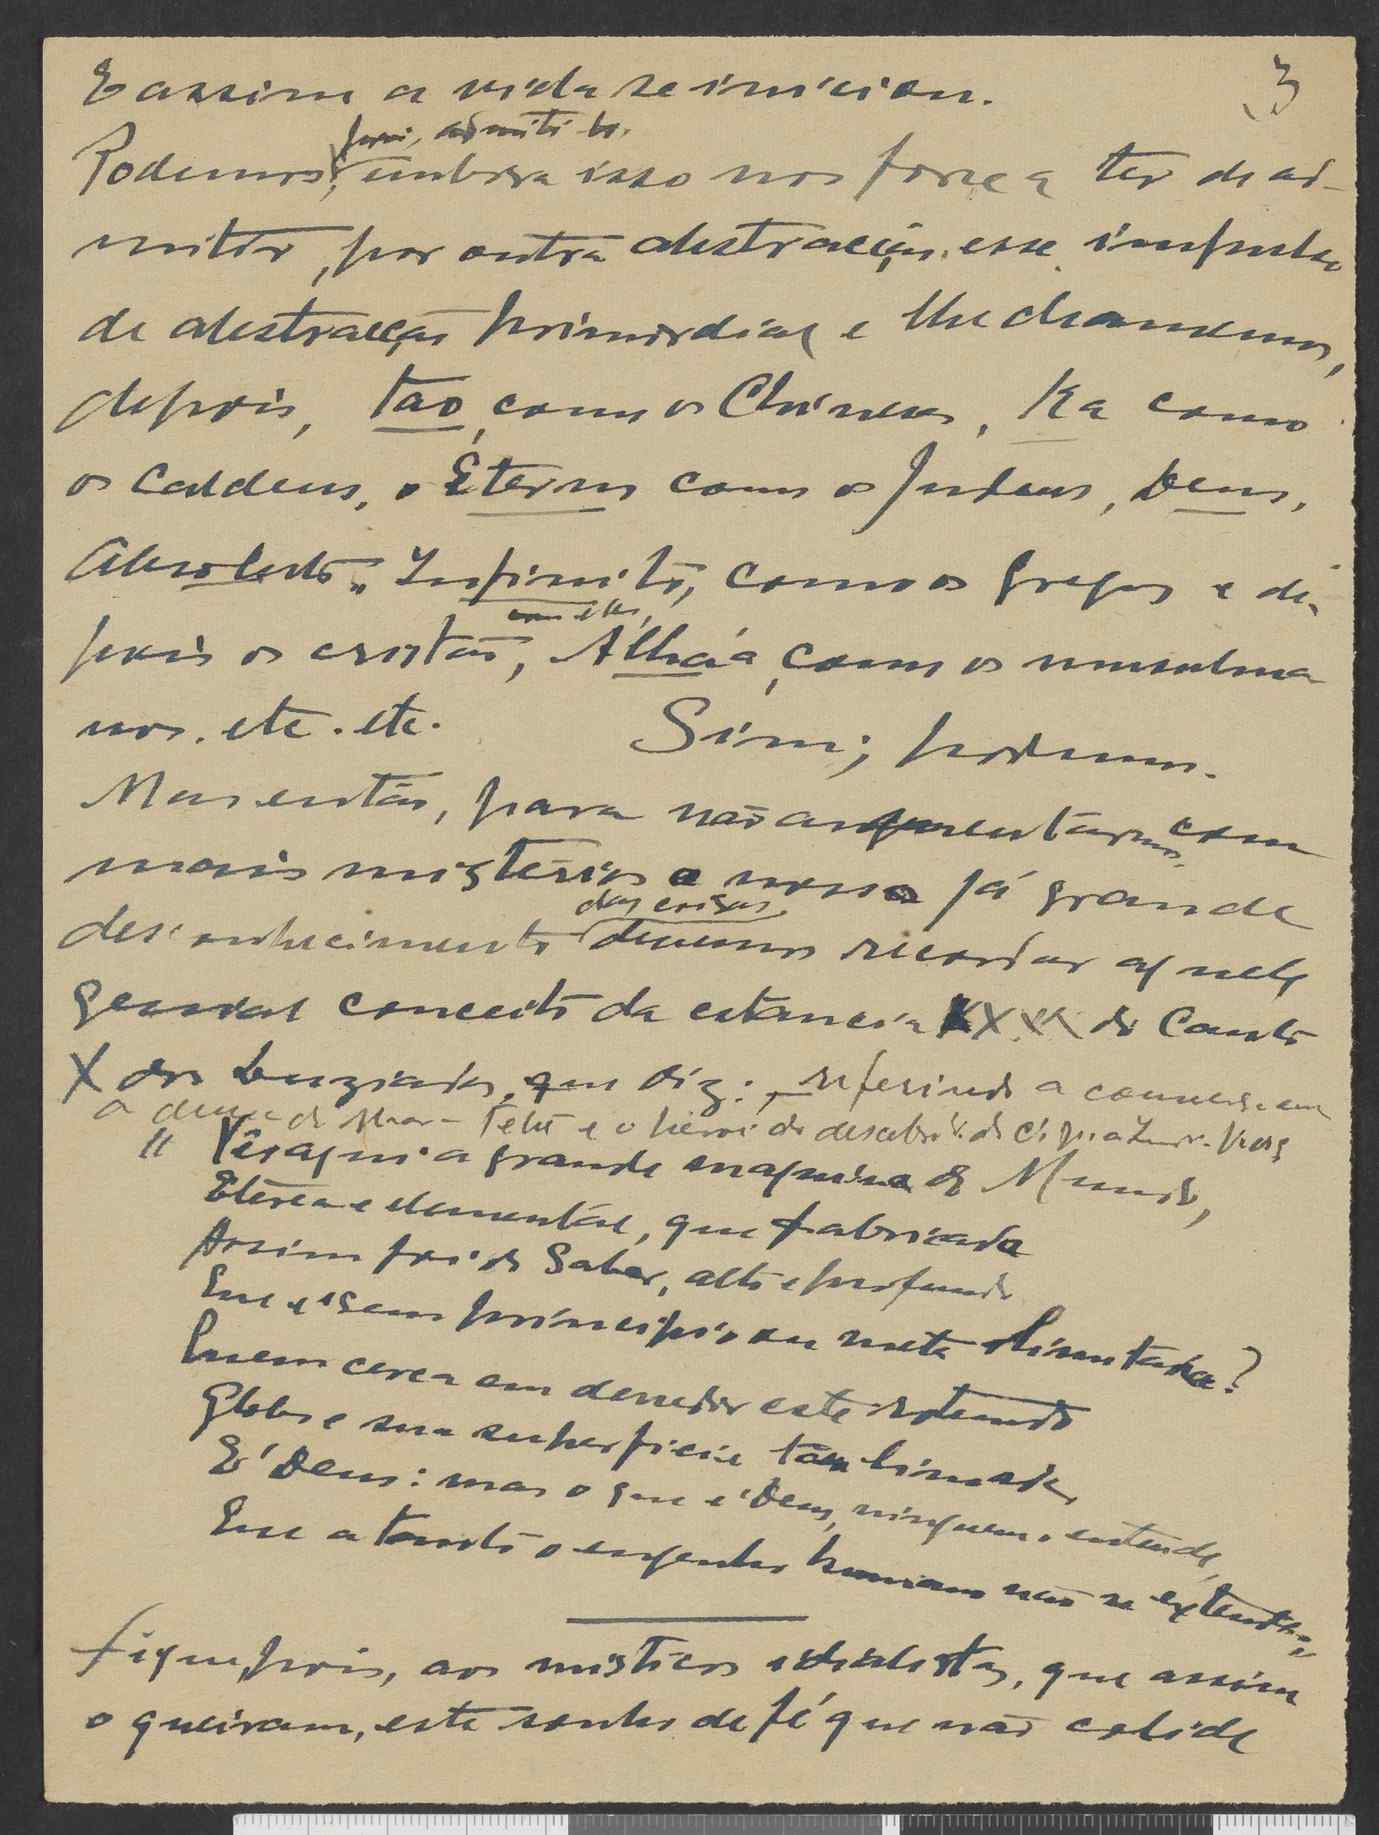 3
E assim a vida se iniciou.
pois, admiti-lo,
Podemos, embora isso nos force a ter de ad-
mitir, por outra abstracção, esse impulso
de abstracção primordial e lhe chamemos,
depois, tao, como os Chineses, Ka como
os Caldeus, o Eterno como os Judeus, Deus,
Absoluto, Infinito, como os gregos e de-
com eles,
pois os cristãos, Allha'a, como os musulma
nos. etc. etc. Sim; podemos.
Mas então, para não aumentarmos com
mais mistérios o nosso já grande
das coisas,
desconhecimento devemos recordar aquele
genial conceito da estancia XXX do Canto
X dos Luziadas, que diz: referindo a conversa em
a deusa do Mar - Tetis e o heroi do descobri.
" Vês aqui a grande maquina do Mundo,
Etérea e elemental, que fabricada
Assim foi do Saber, alto e profundo
Que é sem principio ou meta limitada?
Quem cerca em derredor este rotundo
Globo e sua superficie tam limada,
E' Deus: mas o que é Deus, ninguem o entende,
Que a tanto o engenho humano não se extende."
Fique, pois, aos misticos idealistas, que assim
o queiram, este sonho de fé que não colide